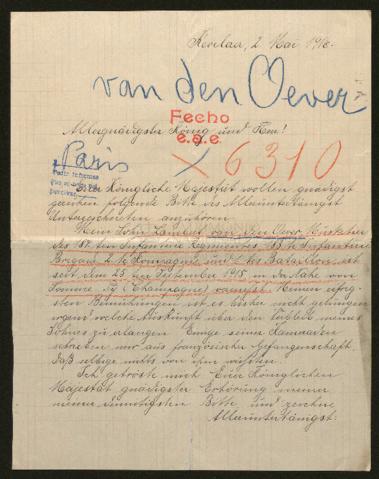 Kevelaar, 2 Mai 1916.
van den Oever
Fecho
e.g.e.
Allergnädigster König und Herr!
Paris
X 6310
Eure Königliche Majestät wollen gnädigst
geruhen folgende Bitte des Alleruntertänigst
Unterzeichneten anzuhören.
Mein Sohn Lambert van den Oever, Musketier
des Infanterie Regimentes, Infanterie
Brigade 2 te Kompagnie und des Bataillons ist
seit dem 25 ten September 1915 in der Nähe von
Somme Py (Champagne) vermißt. Meinen eifrig-
sten Bemühungen ist es bisher nicht gelungen
irgend welche Auskünft über den Verbleib meines
Sohnes zu erlangen. Einige seiner Kameraden
schreiben mir aus französischer Gefangenschaft
daß selbige nichts von ihm wüßten.
Ich getröste mich Eure Königlichen
Majestät gnädigster Erhörung meiner
Bitte und zeichne
Alleruntertänigst.